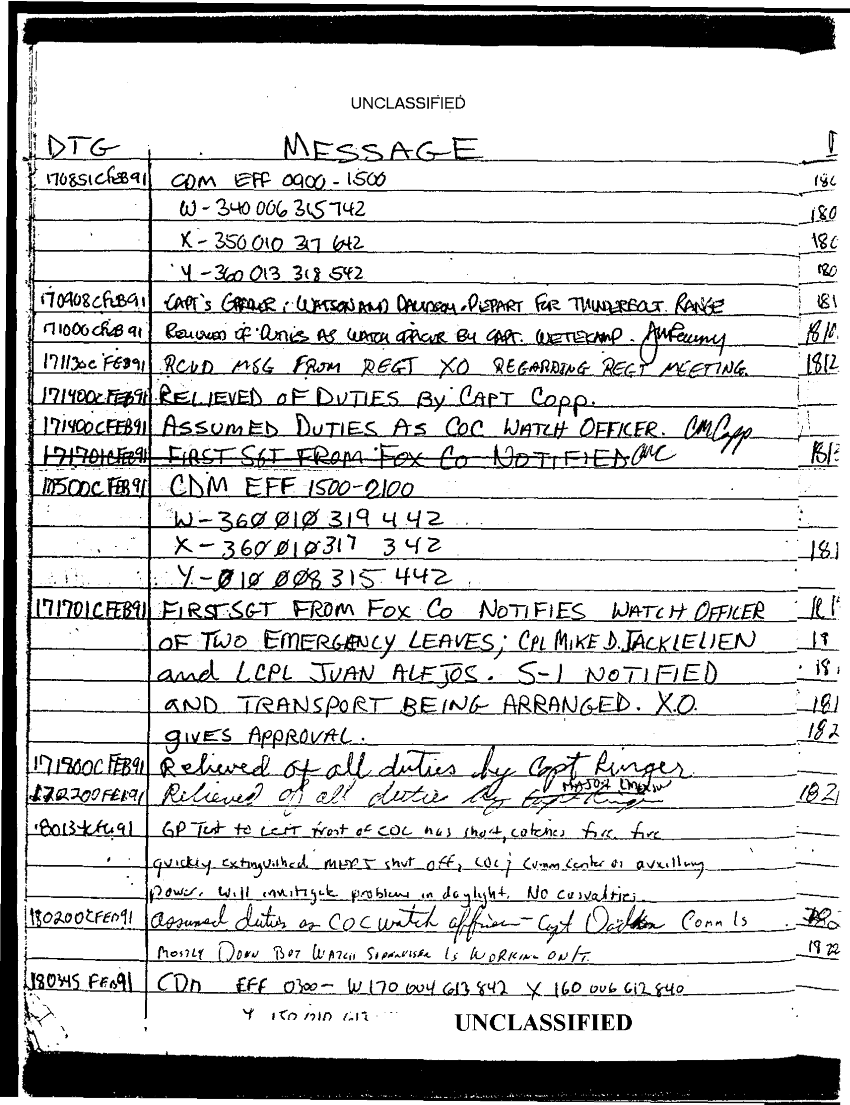 UNCLASSIFIED
DTG MESSAGE
170851CFEB91 CDM EFF 0900-1500
W-340 006 315 742 180
X-350 010 317 642
Y-360 013 318 542
170908CFEB91 CAPT'S WATSON AND DAVIDSON DEPART FOR THUNDERBOLT RANGE 181
171000CFEB91 RELIEVED OF DUTIES AS WATCH OFFICER BY CAPT. WETEKAMP.
171130C FEB91 RCVD MSG FROM REGT XO REGARDING REGT MEETING. 1812
171400CFEB91 RELIEVED OF DUTIES BY CAPT COPP.
171400CFEB91 ASSUMED DUTIES AS COC WATCH OFFICER. CMCopp
171701CFEB91 FIRST SGT FROM FOX CO NOTIFIED CMC
171500C FEB91 CDM EFF 1500-2100
W-360 010 319 442
X-360 010 317 342 181
Y-010 008 315 442
171701CFEB91 FIRST SGT FROM FOX CO NOTIFIES WATCH OFFICER
OF TWO EMERGENCY LEAVES; CPL MIKE D. JACKLELIEN
and LCPL JUAN ALEJOS. S-1 NOTIFIED 18
AND TRANSPORT BEING ARRANGED. X.O. 181
GIVES APPROVAL. 182
171800C FEB91 Relieved of all duties by Capt Ringer
172200FEB91 Relieved of all duties by Capt Ringer MAJOR 182
GP Tent to left front of COC has short, catches fire, fire
quickly extinguished. MEP's shut off, COC; Comm center on auxillary
power. Will investigate problem in daylight. No casualties.
180200CFEB91 Assumed duties as COC watch officer - Capt Comm Is
Mostly Down But Watch Supervisor Is Working on It. 1822
180345 FEB91 CDM EFF 0300- W 170 004 613 842 X 160 006 612 840
Y 150 010
UNCLASSIFIED